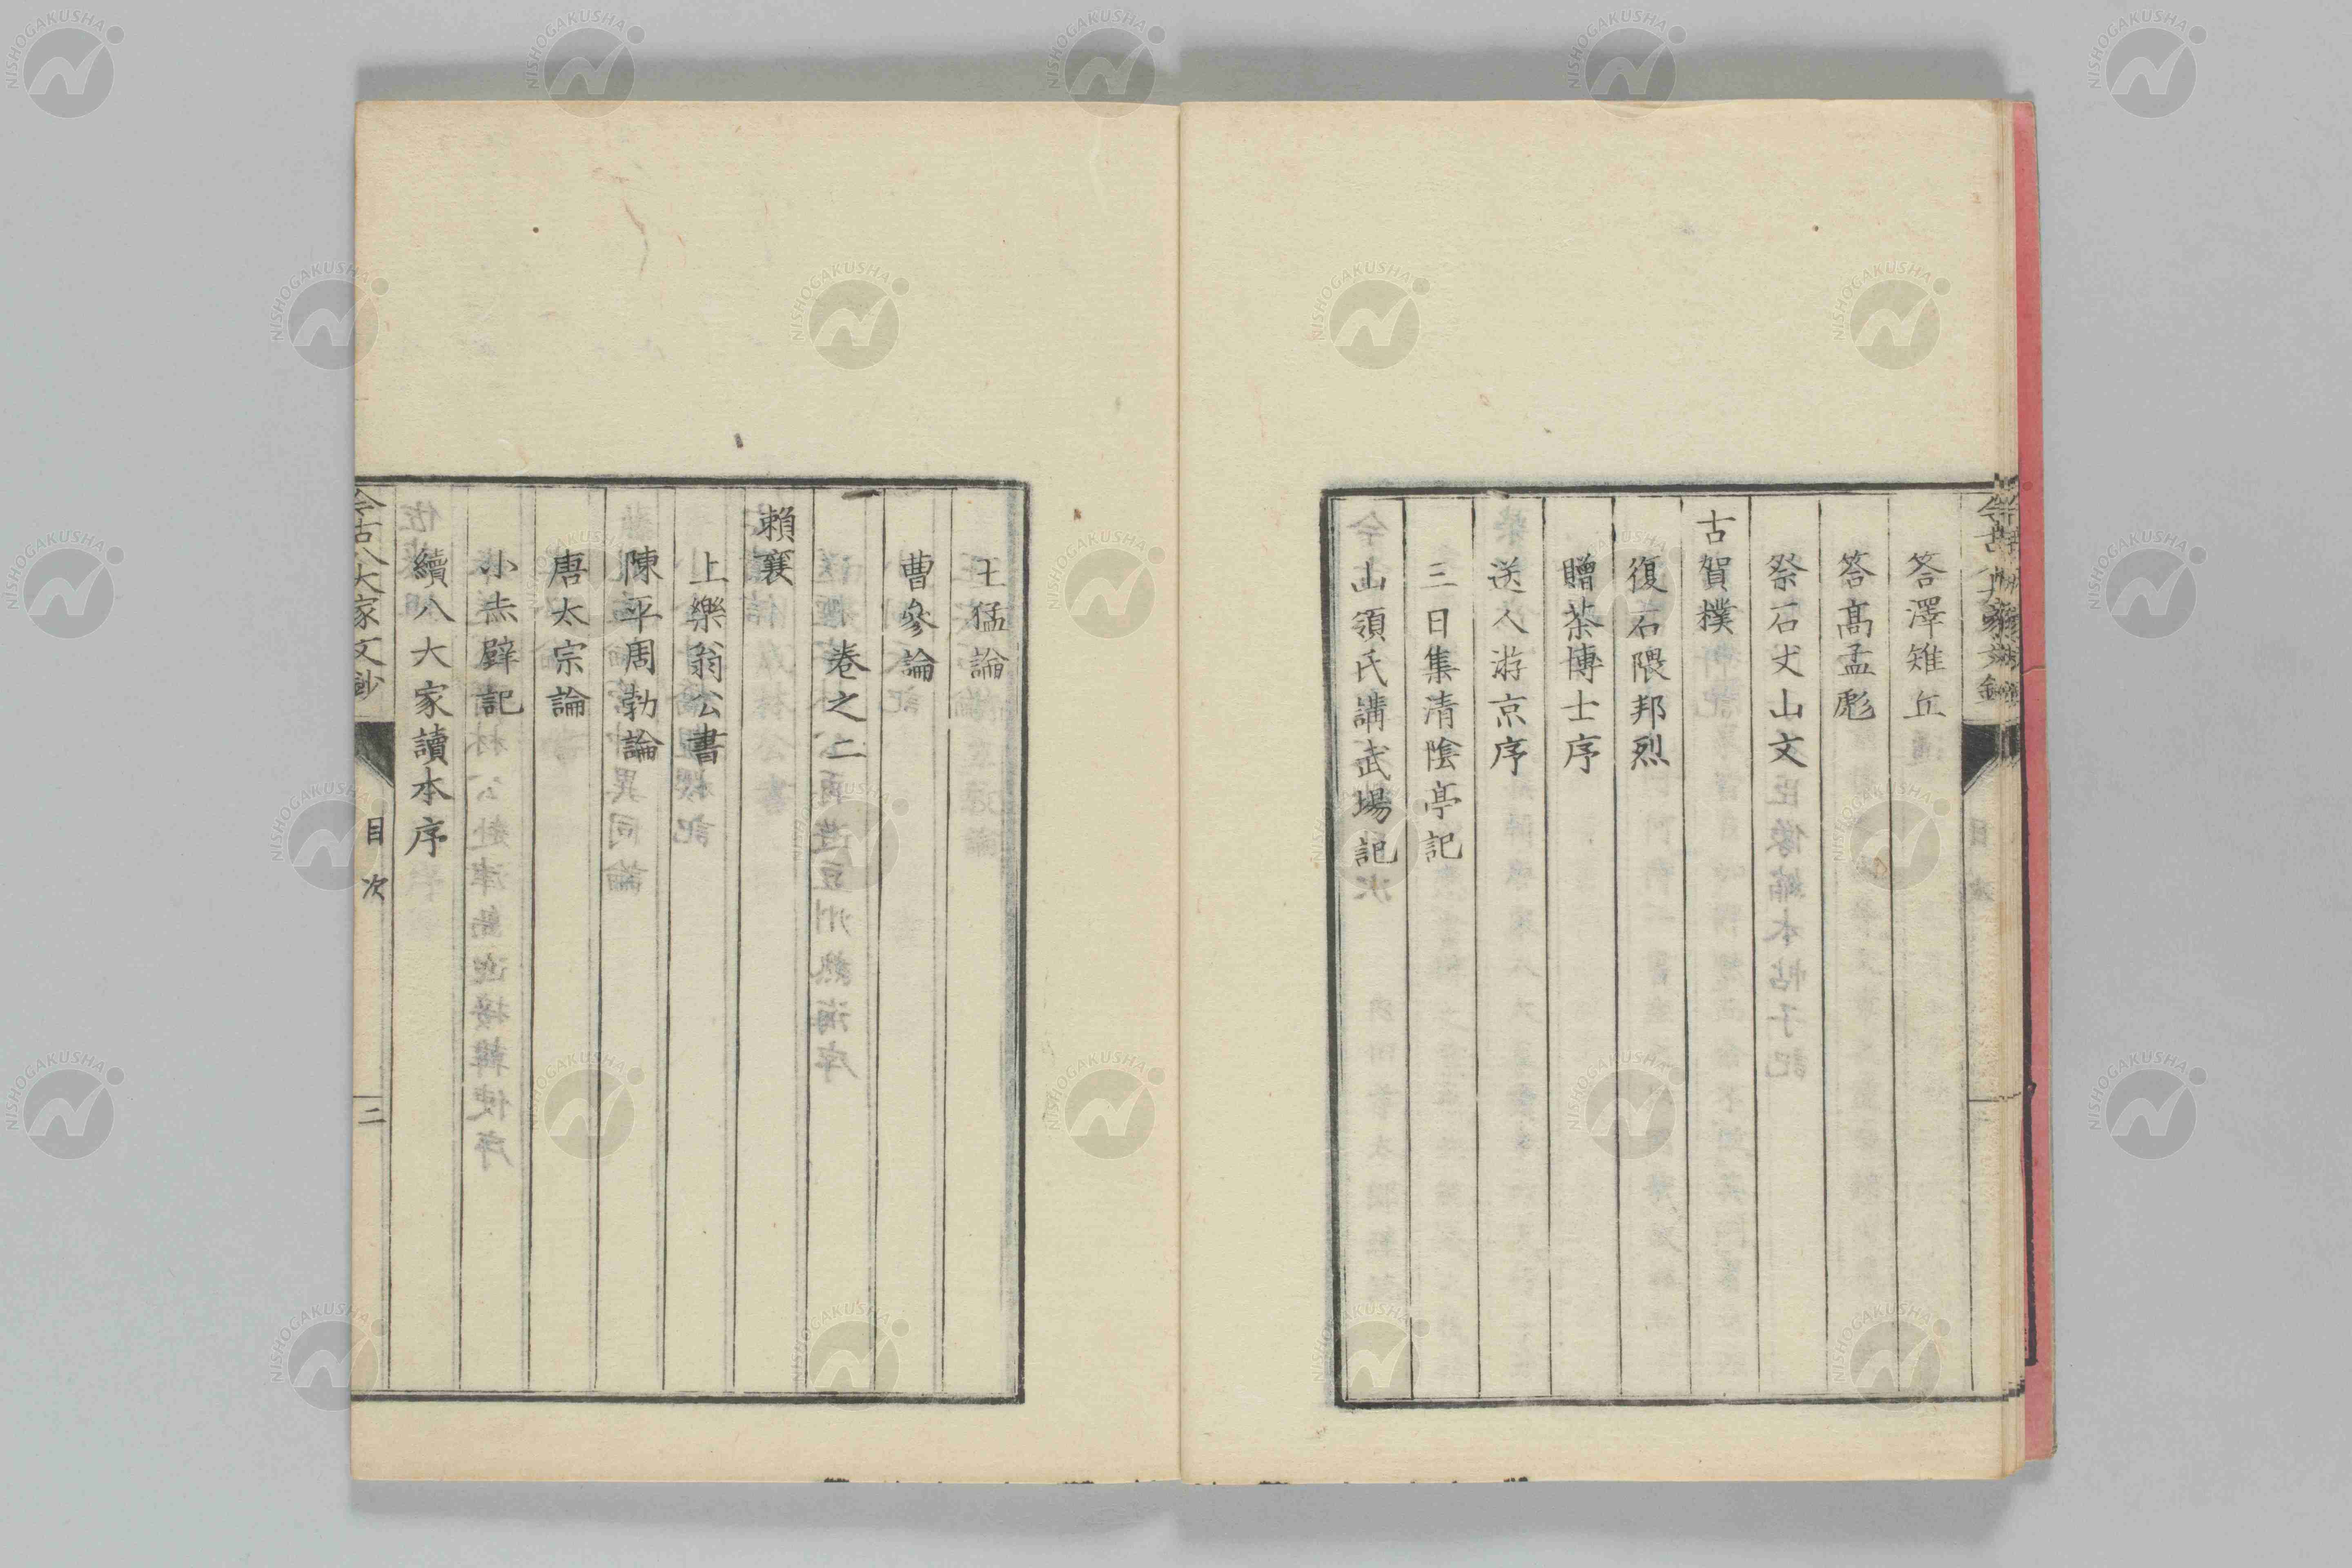 答澤雉丘
答髙孟彪
祭石丈山文
古賀樸
復石隈邦烈
贈茶博士序
送人游京序
三日集清陰亭記
山領氏講武場記
王猛論
曹參論
卷之二
賴襄
上樂翁公書
陳平周勃論
唐太宗論
小赤壁記
續八大家讀本序
今古八大家文鈔
目次
二
NISHOGAKUSHA